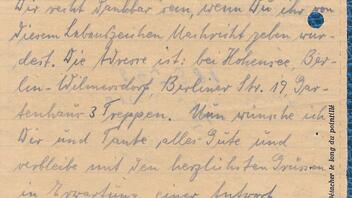 Dir recht dankbar sein, wenn Du ihr von
diesem Lebenszeichen Nachricht geben wür-
dest. Die Adresse ist: bei Hohensee, Ber-
lin-Wilmersdorf, Berliner Str. 19, Gar-
tenhaus 3 Treppen. Nun wünsche ich
Dir und Tante alles Gute und
verbleibe mit den herzlichsten Grüssen
in Erwartung einer Antwort
le long du pointillé